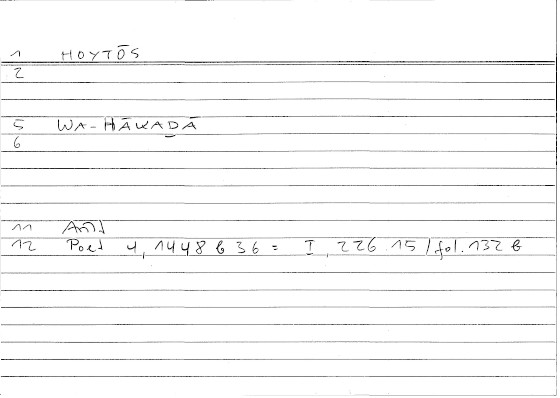 1 HOYTŌS
2
5 WA-HĀKAḎĀ
6
11 Arist
12 Poet 4, 1448 b 36 = I, 226.15 / fol. 132 b